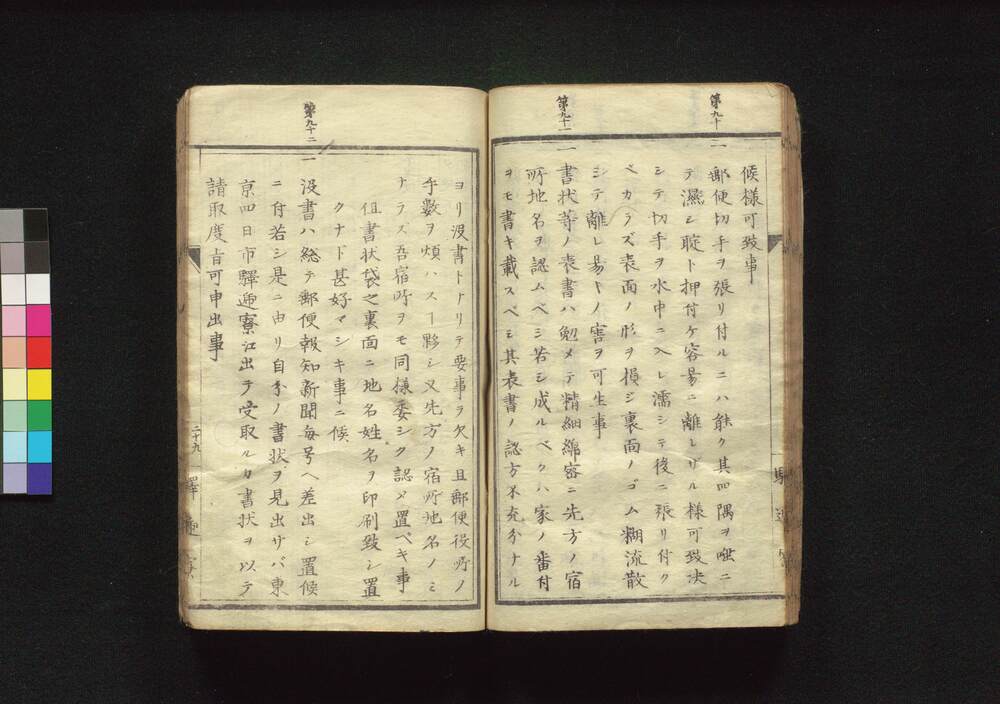 候様可致事
第九十
一 郵便切手ヲ張リ付ルニハ能ク其四隅ヲ唾ニ
テ濕シ聢ト押付ケ容易ニ離レザル様可致决
シテ切手ヲ水中ニ入レ濡シテ後ニ張リ付ク
ベカラズ表面ノ形ヲ損シ裏面ノゴム糊流散
シテ離レ易キノ害ヲ可生事
第九十一
一 書状等ノ表書ハ勉メテ精細綿密ニ先方ノ宿
所地名ヲ認ムベシ若シ成ルベクハ家ノ番付
ヲモ書キ載スベシ其表書ノ認方不充分ナル
ヨリ没書トナリテ要事ヲ欠キ且郵便役所ノ
手数ヲ煩ハスヿ夥シ又先方ノ宿所地名ノミ
ナラス吾宿所ヲモ同様委シク認メ置ベキ事
但書状袋之裏面ニ地名姓名ヲ印刷致シ置
クナド甚好マシキ事ニ候
第九十二
一 没書ハ総テ郵便報知新聞毎号ヘ差出シ置候
ニ付若シ是ニ由リ自分ノ書状ヲ見出サバ東
京四日市驛逓寮江出テ受取ルカ書状ヲ以テ
請取度旨可申出事
二十九
驛逓寮